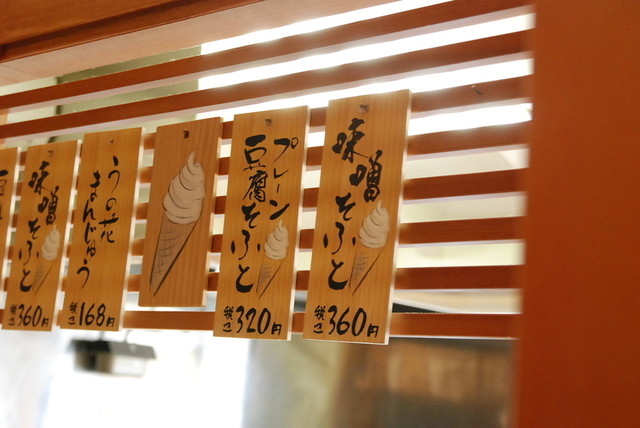 味噌そふと
税込360円
プレーン
豆腐そふと
税込320円
うの花
まんじゅう
税込168円
味噌そふと
税込360円